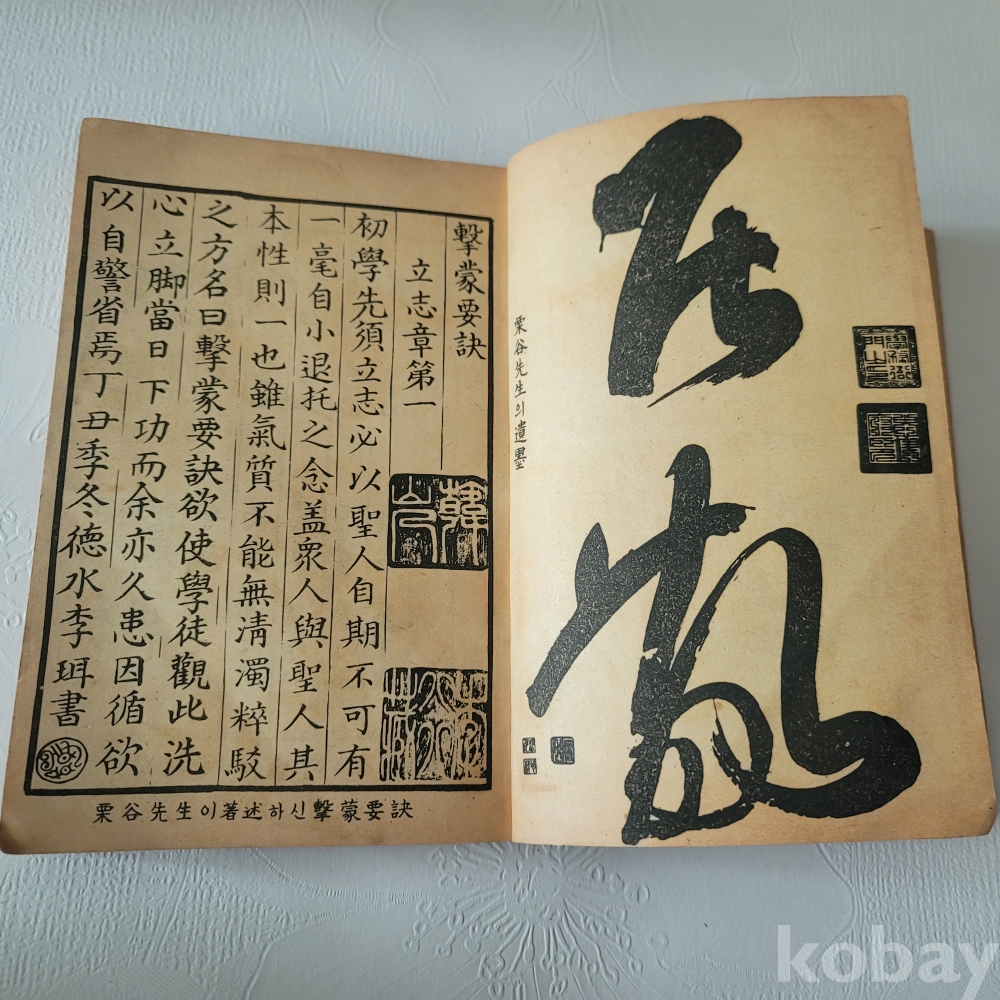 栗谷先生의遺墨
擊蒙要訣
立志章第一
初學先須立志必以聖人自期不可有
一毫自小退托之念盖衆人與聖人其
本性則一也雖氣質不能無淸濁粹駁
之方名曰擊蒙要訣欲使學徒觀此洗
心立脚當日下功而余亦久患因循欲
以自警省焉丁丑季冬德水李珥書
栗谷先生이著述하신擊蒙要訣
kobay